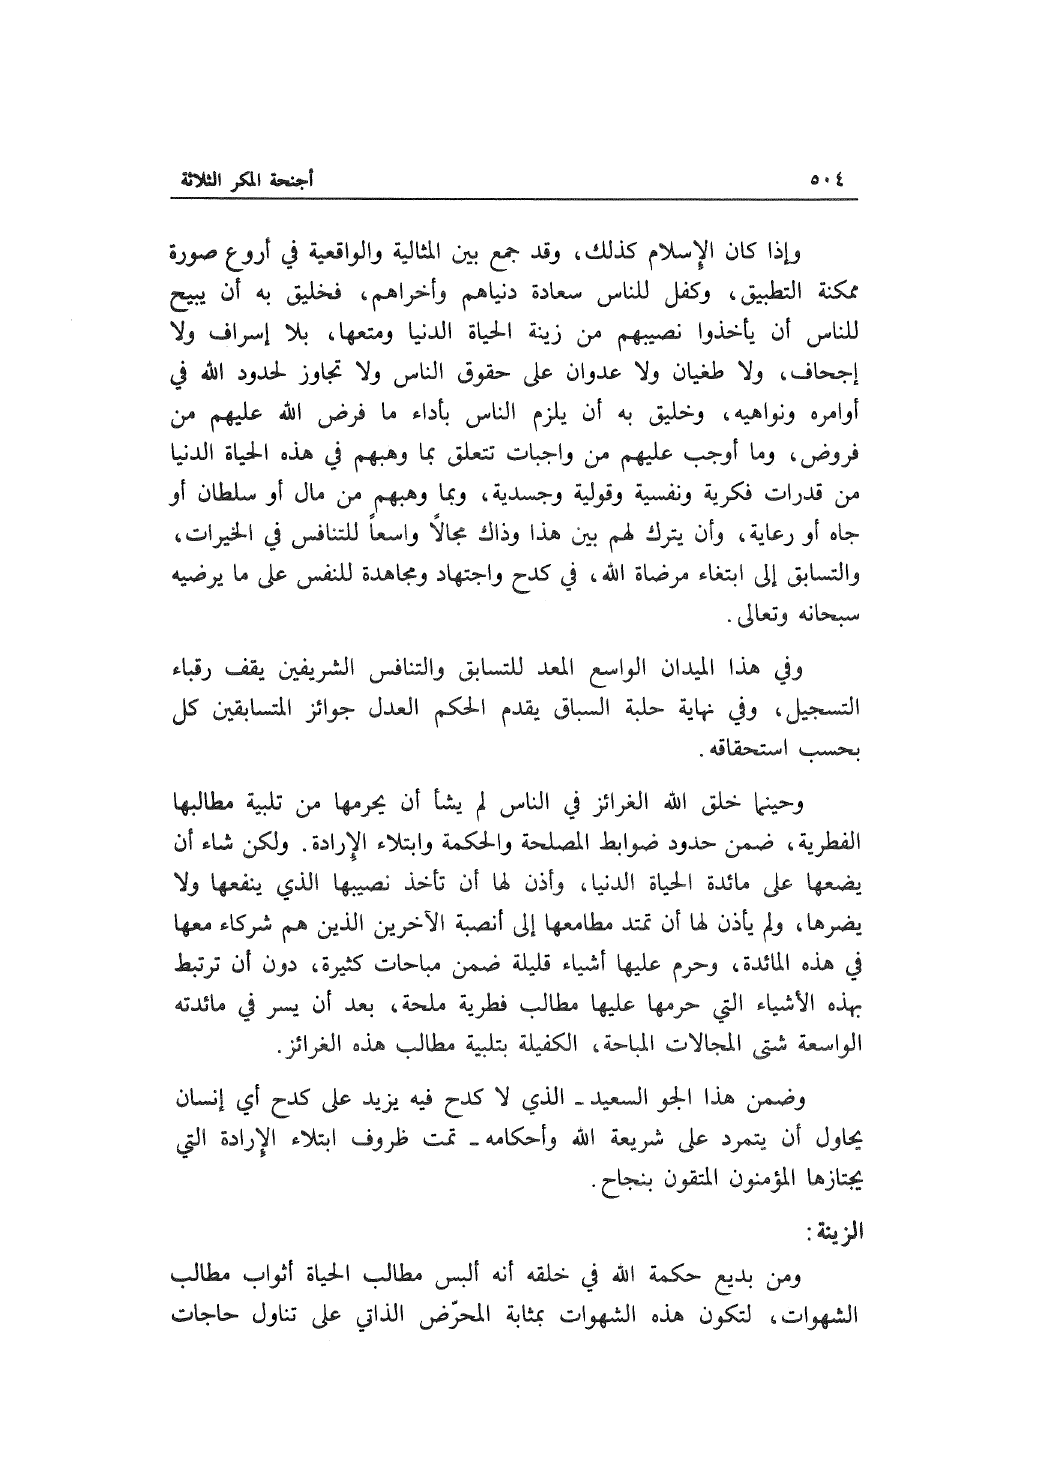 ٥٠٤ أجنحة المكر الثلاثة
وإذا كان الإسلام كذلك، وقد جمع بين المثالية والواقعية في أروع صورة
ممكنة التطبيق، وكفل للناس سعادة دنياهم وأخراهم، فخليق به أن يبيح
للناس أن يأخذوا نصيبهم من زينة الحياة الدنيا ومتعها، بلا إسراف ولا
إجحاف، ولا طغيان ولا عدوان على حقوق الناس ولا تجاوز لحدود الله في
أوامره ونواهيه، وخليق به أن يلزم الناس بأداء ما فرض الله عليهم من
فروض، وما أوجب عليهم من واجبات تتعلق بما وهبهم في هذه الحياة الدنيا
من قدرات فكرية ونفسية وقولية وجسدية، وبما وهبهم من مال أو سلطان أو
جاه أو رعاية، وأن يترك لهم بين هذا وذاك مجالاً واسعاً للتنافس في الخيرات،
والتسابق إلى ابتغاء مرضاة الله، في كدح واجتهاد ومجاهدة للنفس على ما يرضيه
سبحانه وتعالى.
وفي هذا الميدان الواسع المعد للتسابق والتنافس الشريفين يقف رقباء
التسجيل، وفي نهاية حلبة السباق يقدم الحكم العدل جوائز المتسابقين كل
بحسب استحقاقه.
وحينما خلق الله الغرائز في الناس لم يشأ أن يحرمها من تلبية مطالبها
الفطرية، ضمن حدود ضوابط المصلحة والحكمة وابتلاء الإرادة. ولكن شاء أن
يضعها على مائدة الحياة الدنيا، وأذن لها أن تأخذ نصيبها الذي ينفعها ولا
يضرها، ولم يأذن لها أن تمتد مطامعها إلى أنصبة الآخرين الذين هم شركاء معها
في هذه المائدة، وحرم عليها أشياء قليلة ضمن مباحات كثيرة، دون أن ترتبط
بهذه الأشياء التي حرمها عليها مطالب فطرية ملحة، بعد أن يسر في مائدته
الواسعة شتى المجالات المباحة، الكفيلة بتلبية مطالب هذه الغرائز.
وضمن هذا الجو السعيد - الذي لا كدح فيه يزيد على كدح أي إنسان
يحاول أن يتمرد على شريعة الله وأحكامه - تمت ظروف ابتلاء الإرادة التي
يجتازها المؤمنون المتقون بنجاح.
الزينة:
ومن بديع حكمة الله في خلقه أنه ألبس مطالب الحياة أثواب مطالب
الشهوات، لتكون هذه الشهوات بمثابة المحرّض الذاتي على تناول حاجات